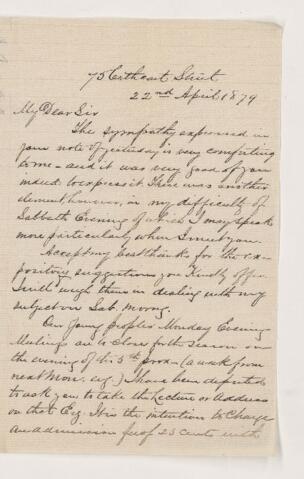 75 Cathcart Street
22nd April 1879
My Dear Sir
The sympathy expressed in
your note of yesterday is very comforting
to me - and it was very good of you
indeed to express it. There was another
element however, in my difficulty of
Sabbath Evening of which I may speak
more particularly when I meet you.
Accept my best thanks for the ex-
pository suggestions you kindly offer
I will weigh them in dealing with my
subject on Sab. morng.
Our Young people's Monday Evening
Meetings are to close for the season on
the evening of the 5th prox - (a week from
next Mon. evg.) I have been deputed
to ask you to take the Lecture or Address
on that Evg. It is the intention to charge
an admission fee of 25 cents with